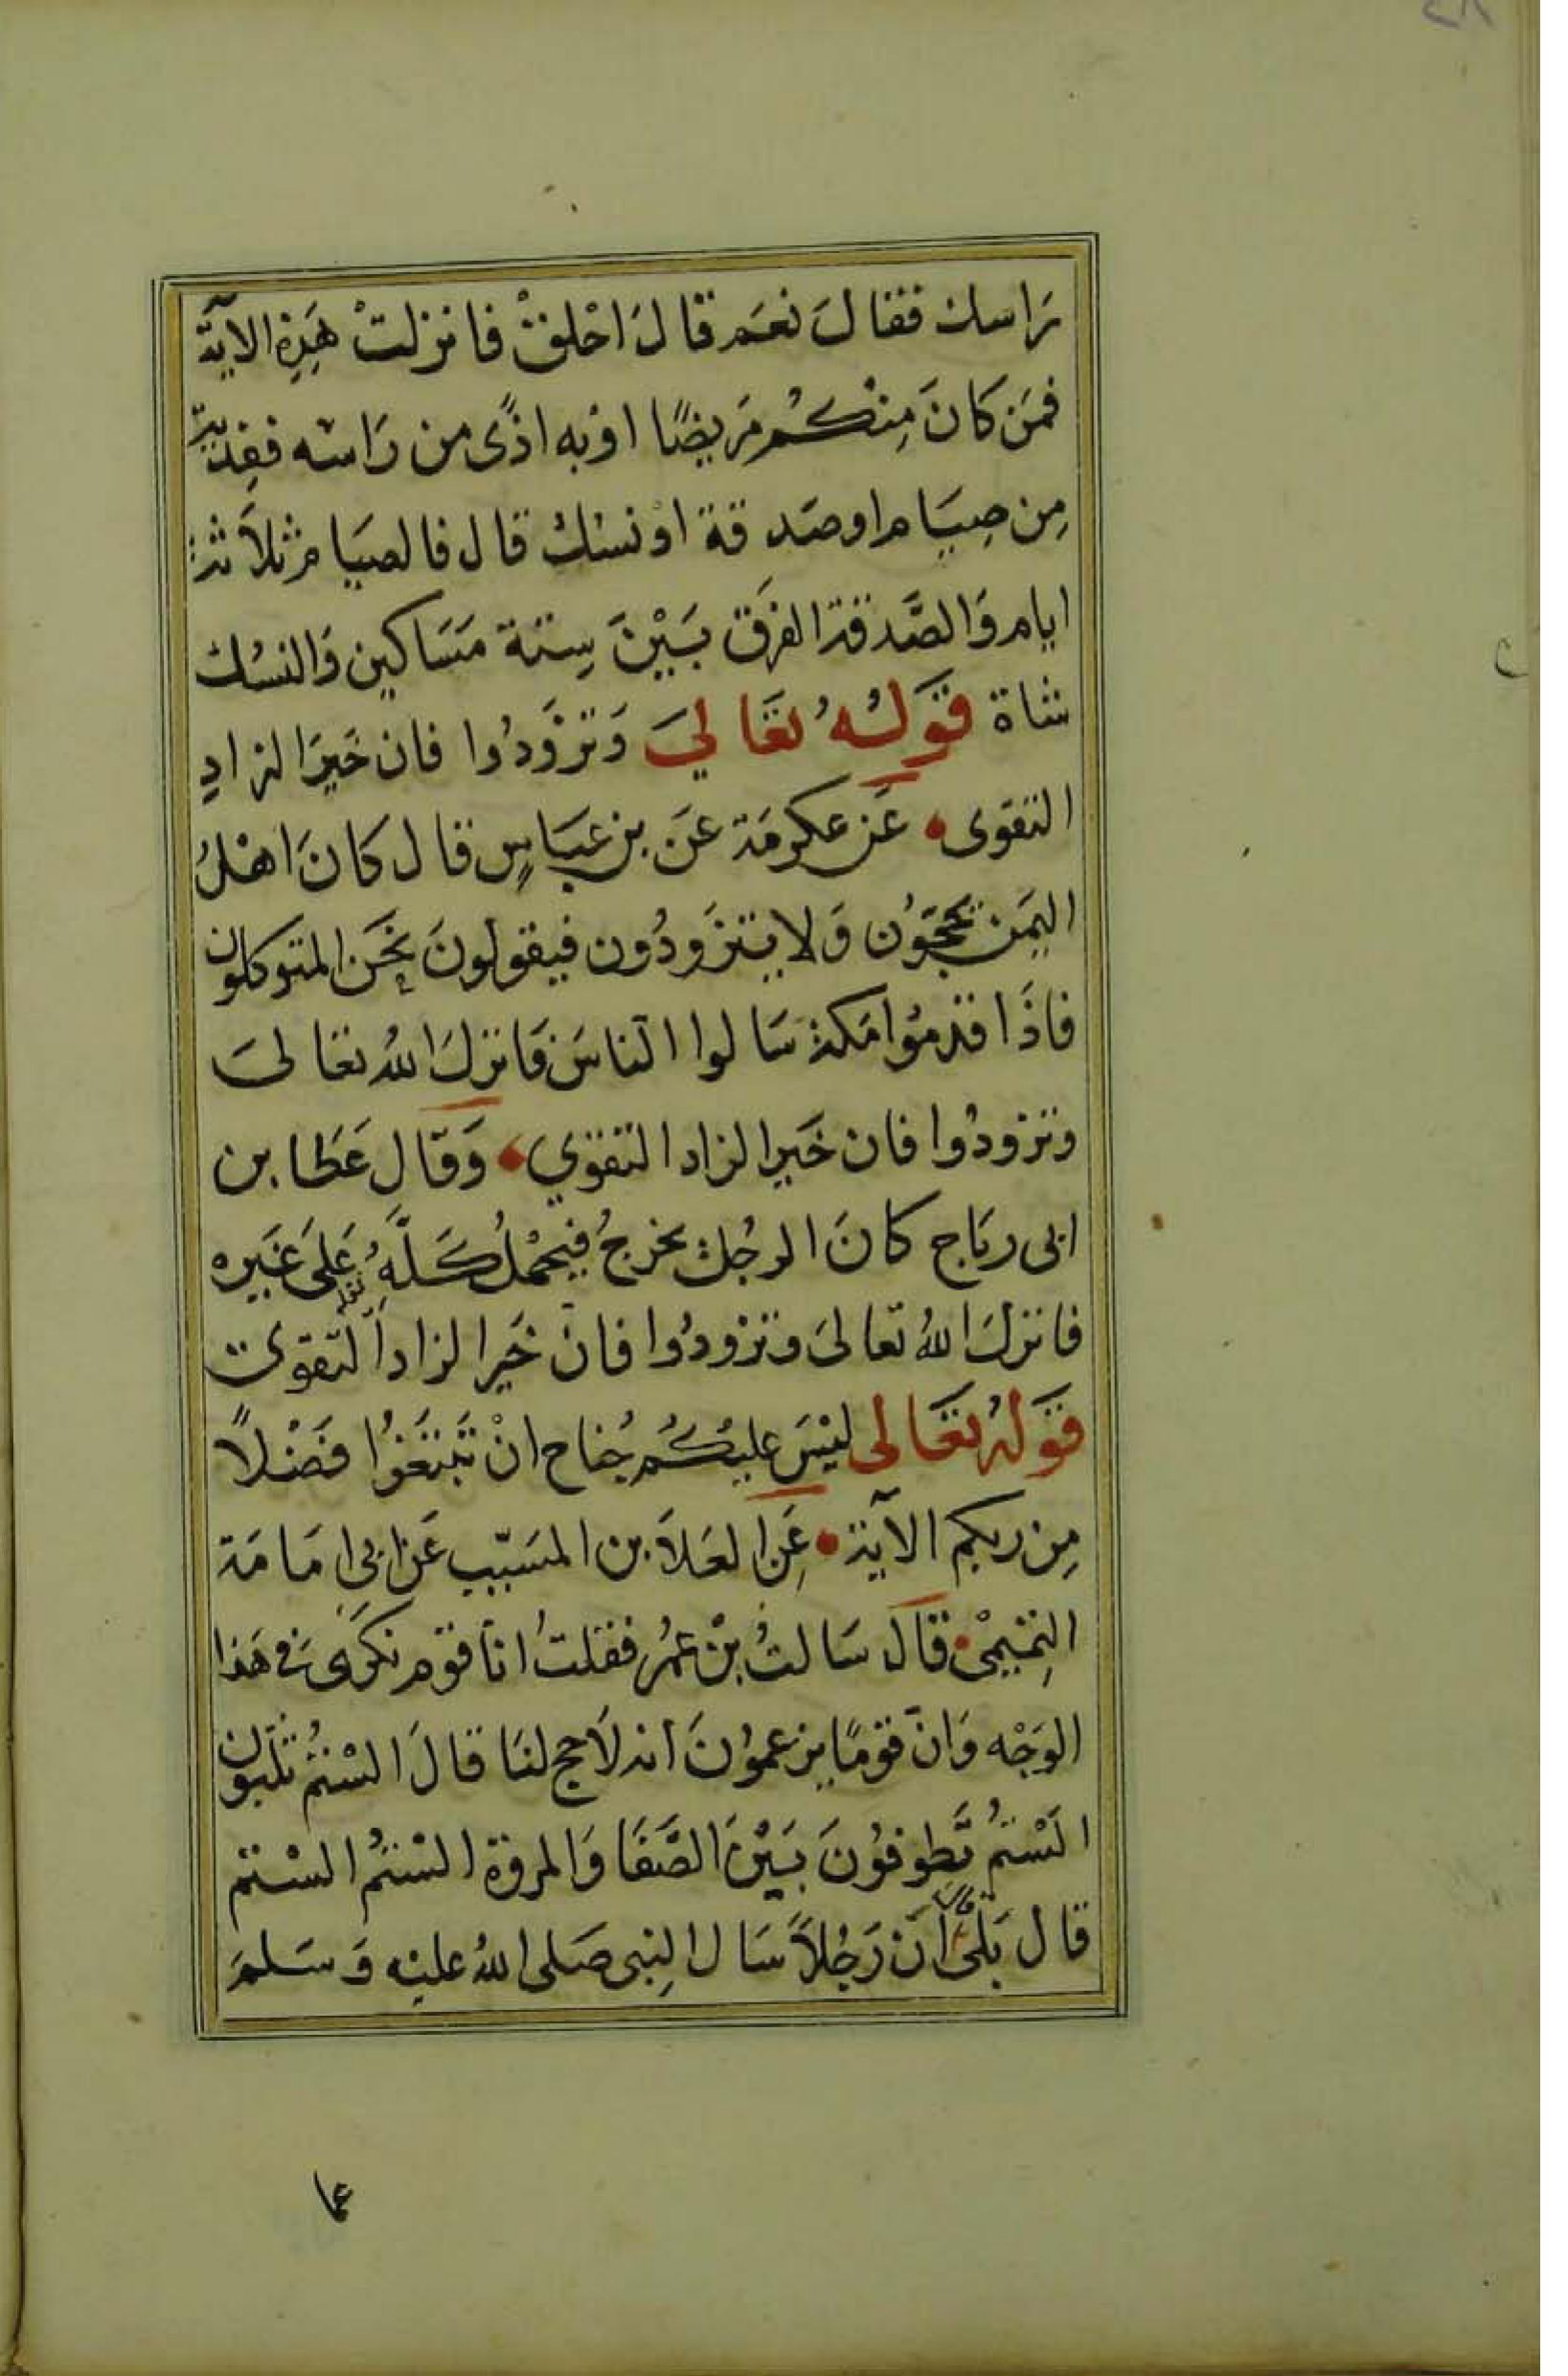 رَاسك فقال نعَم قالَ احْلقْ فانزلتْ هَذِهِ الآية
فمَن كانَ مِنْكُم مَريضًا اوْ به اذًى من رَاسه ففِدْيَة
مِن صِيَام او صَدقة اوْ نسُك قال فالصيام ثلاَثة
ايام وَالصَّدقة الفرَق بَيْنَ سِتة مَسَاكين وَالنسُك
شاة قَولُهُ تعَالىَ وَتزوَّدُوا فان خَيرَ الزادِ
التقوى عَن عكرمَة عَن بن عبَاسٍ قال كانَ اهْلُ
اليَمن يحجّوُن وَلا يتزَودُون فيقولونَ نحَن المتوكلون
فاذَا قدمُوا مَكة سَالوا الناسَ فَانزلَ اللهُ تعَالىَ
وتزودُوا فان خَيرا لزاد التقوَي وَقال عَطا بن
ابى ربَاح كانَ الرجُل يخرجُ فيحْملُ كَلَّهُ عَلىَ غَيره
فانزلَ اللهُ تعالىَ وتزْودُوا فانّ خَيرا لزاد التقوى
قَولهُ تعَالى ليْسَ عليْكُم جُناح انْ تَبْتَغوُا فضْلاً
مِن ربكم الآية عَنِ العَلاَ بن المسَيّب عَن ابي امَامَة
التميمْى قالَ سَالتُ بْن عمُر فقلتُ اناّ قوْم نكرَى في هَذا
الوَجْه وَانّ قوْمًا يزعموُنَ انه لاَ حج لنَا قالَ السْتمُ تلَبون
الَسْتمُ تَطوفوُنَ بَيْنَ الصَّفَا وَالمروَة السْتمُ السْتم
قال بَلى انّ رَجُلاً سَال النِبى صَلى اللهُ عليْه وَسَلمَ
عما